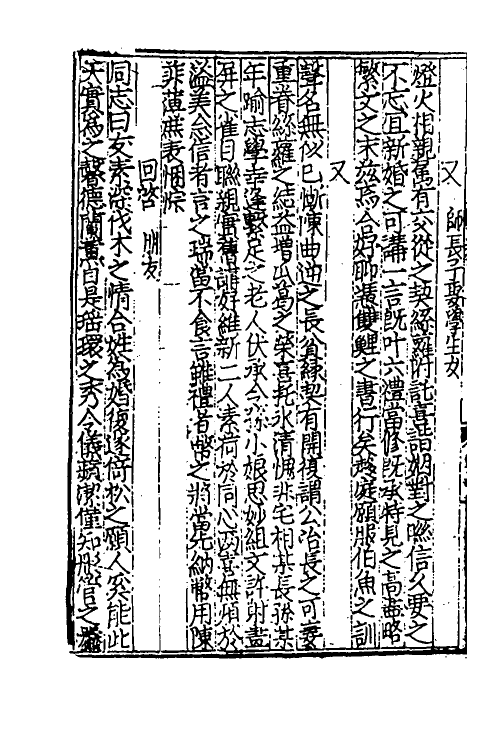 又　師長子娶學生女
燈火相親舊有交從之契絲蘿附託喜諧姻對之歡信久要之
不忘宜新婚之可講一言既叶六禮當修既承特見之高盡略
繁文之末茲焉合好聊裁雙鯉之書行矣趨庭願服伯魚之訓
又
聲名無似已慚陳曲逆之長貧緣契有開復謂公冶長之可妻
重眷絲蘿之結益增蓬蓽之榮喜托氷清愧非宅相某長孫某
年踰志學幸逢繫足之老人伏承令孫小娘思妙組文許射畫
屏之雀目聯親實舊講好維新二人素荷於同心兩喜無煩於
溢美念信者言之瑞當不食言雖禮者幣之將當先納幣用陳
菲薄庶表悃悰
回啓　朋友
同志曰友素深伐木之情合姓為婚復遂倚松之願人奚能此
天實為之馨德蘭薰自是瑤環之秀令儀蘋潔僅知彤管之